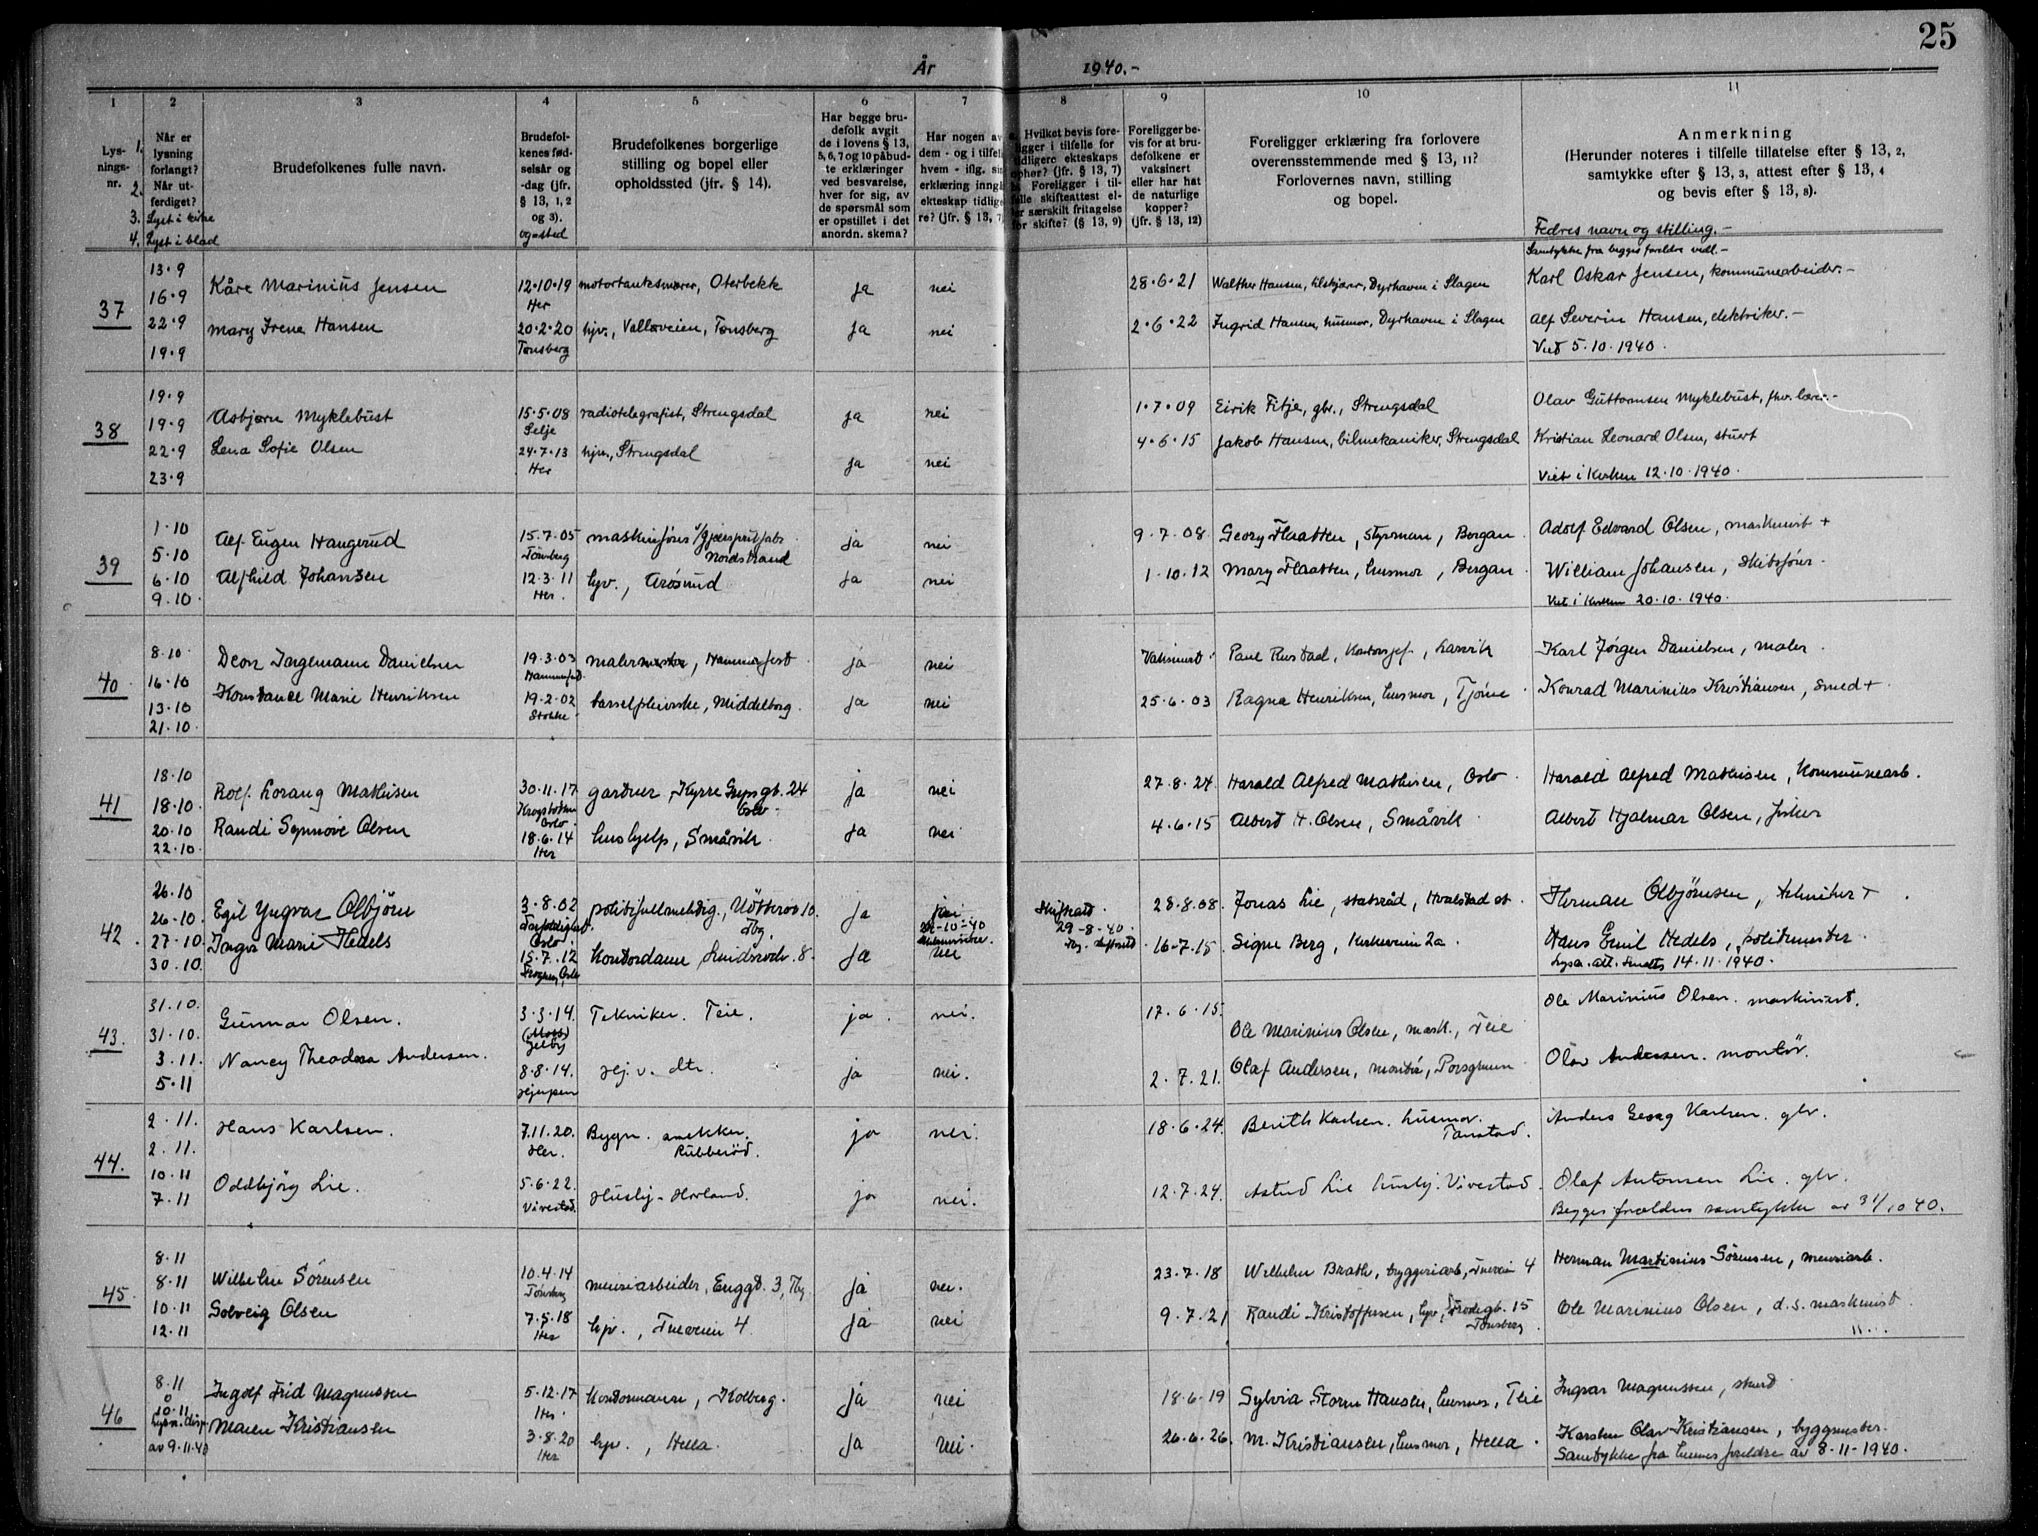 25
År 1940.-
1 2 3 4 5 6 7 8 9 10 11
Lys-
nings-
nr.
1.
2.
3.
4.
Når er
lysning
forlangt?
Når ut-
ferdiget?
Lyst i kirke
Lyst i blad
Brudefolkenes fulle navn.
Brudefol-
kenes fød-
selsår og
-dag (jfr.
§ 13, 1, 2
og 3).
og -sted
Brudefolkenes borgerlige
stilling og bopel eller
opholdssted (jfr. § 14).
Har begge bru-
defolk avgit
de i lovens § 13,
5, 6, 7 og 10 påbud-
te erklæringer
ved besvarelse,
hver for sig, av
de spørsmål som
er opstillet i det
anordn. skema?
Har nogen av
dem - og i tilfelle
hvem - iflg. sin
erklæring inngå
ekteskap tidlige
re? (jfr. § 13, 7
Hvilket bevis fore-
ligger i tilfelle for
tidligere ekteskaps
ophør? (jfr. § 13, 7)
Foreligger i til-
felle skifteattest el-
ler særskilt fritagelse
for skifte? (§ 13, 9)
Foreligger be-
vis for at bru-
defolkene er
vaksinert
eller har hat
de naturlige
kopper?
(jfr. § 13, 12)
Foreligger erklæring fra forlovere
overensstemmende med § 13, 11?
Forlovernes navn, stilling
og bopel.
Anmerkning
(Herunder noteres i tilfelle tillatelse efter § 13, 2,
samtykke efter § 13, 3, attest efter § 13, 4
og bevis efter § 13, 8).
Fedres navn og stilling.-
Samtykke fra begges foreldre vedl.-
37
13.9
16.9
22.9
19.9
Kåre Marinius Jensen 12.10.19 Her motortanksmører, Oterbekk ja nei 28.6.21 Walther Hansen, Dyrhaven i Slagen Karl Oskar Jensen, kommunearbeider.-
Mary Irene Hansen 20.2.20 Tønsberg hjv., Valløveien, Tønsberg ja nei 2.6.22 Ingrid Hansen, husmor, Dyrhaven i Slagen Alf Severin Hansen, elektriker.-
Viet 5.10.1940.
38
19.9
19.9
22.9
23.9
Asbjørn Myklebust 15.5.08 Selje radiotelegrafist, Strengsdal ja nei 1.7.09 Eirik Fitje, gbr., Strengsdal Olav Guttomsen Myklebust, fhv. lærer.-
Lena Sofie Olsen 24.7.13 Her hjv., Strengsdal ja nei 4.6.15 Jakob Hansen, bilmekaniker, Strengsdal Kristian Leonard Olsen, stuert
Viet i Kirken 12.10.1940.
39
1.10
5.10
6.10
9.10.
Alf Eugen Haugerud 15.7.05 Tønsberg maskinfører Nordstrand ja nei 9.7.08 Georg Flaatten, styrman, Bergan Adolf Edvard Olsen, maskinist +
Alfhild Johansen 12.3.11 Her. hjv., Årøsund ja nei 1.10.12 Mary Flaatten, husmor, Bergan. William Johansen, skibsfører.
Viet i Kirken 20.10.1940.
40
8.10.
16.10
13.10
21.10.
Deon Ingemann Danielsen 19.3.03 Hammerfest. malermester, Hammerfest ja nei Vaksinert. Paul Rustad, Kontorsjef, Larvik Karl Jørgen Danielsen, maler.
Konstance Marie Henriksen 19.2.02 Stokke barselpleierske, Middelborg. ja nei 25.6.03 Ragna Henriksen, husmor, Tjøme Konrad Marinius Kristiansen, smed +
41
18.10
18.10.
20.10
22.10.
Rolf Lorang Mathisen 30.11.17 Oslo. gartner, Kyrre Grepsgt. 24 Oslo. ja nei 27.8.24. Harald Alfred Mathisen, Oslo. Harald Alfred Mathisen, Kommunearb.
Randi Synnøve Olsen 18.6.14 Her hushjelp, Småvik. ja nei 4.6.15 Albert H. Olsen, Småvik. Albert Hjalmar Olsen, fisker
42.
26.10
26.10.
27.10.
30.10.
Egil Yngvar Olbjørn 3.8.02 Oslo. politifullmektig, 10. Tbg. ja 29-8-40. 28.8.08. Jonas Lie, statsråd, Hvalstad st. Herman Olbjørnsen, tekniker +
Inger Marie Hedels 15.7.12 Frogner, Oslo Kontordame 8. ja nei 16-7.15 Signe Berg, Kirkeveien 2a. Hans Emil Hedels, politimester.
Lysn. att. sendt 14.11.1940.
43.
31.10.
31.10.
3.11.
5.11
Gunnar Olsen. 3.3.14. Tekniker. Teie. ja. nei. 17.6.15. Ole Marinius Olsen, mask., Teie Ole Marinius Olsen. maskinist.
Nancy Theodora Andersen. 8.8.14. Gjerpen Hj. v. dtr. ja nei. 2.7.21. Olaf Andersen, montør, Porsgrunn Olav Andersen. montör.
44.
2.11.
2.11.
10.11
7.11
Hans Karlsen. 7.11.20. Her. Bygn. snekker. Rubberöd. ja nei. 18.6.24. Berith Karlsen. husmor. Tanstad. Anders Georg Karlsen. gbr.
Oddbjörg Lie. 5.6.22. Vivestad. Hushj.- Horland. ja nei. 12.7.24. Astrid Lie hushj. Vivestad. Olaf Antonsen Lie. gbr.
Begges foreldres samtykke av 31/10 40.
45.
8.11
8.11
10.11
12.11
Wilhelm Sörensen 10.4.14 Tönsberg meieriarbeider, Enggt. 3, Tbg ja nei. 23.7.18 Wilhelm Brath, bryggeriarb., 4 Herman Martinius Sørensen, meieriarb.
Solveig Olsen 7.5.18 Her hjv., 4. ja nei 9.7.21 Randi Kristoffersen, hjv, Frodegt. 15 Tønsberg. Ole Marinius Olsen, d.s. maskinist
46
8.11
10.11
Lysn. disp.
av 9.11.40
Ingolf Frid Magnussen 5.12.17 Her. Kontormann, Kolberg. ja nei 18.6.19 Sylvia Storm Hansen, husmor, Teie Ingvar Magnussen, stuert
Maien Kristiansen 3.8.20 Her hjv., Hella. ja nei. 26.6.26. M. Kristiansen, husmor, Hella. Karsten Olav Kristiansen, byggmester.
Samtykke fra hennes foreldre av 8-11-1940.